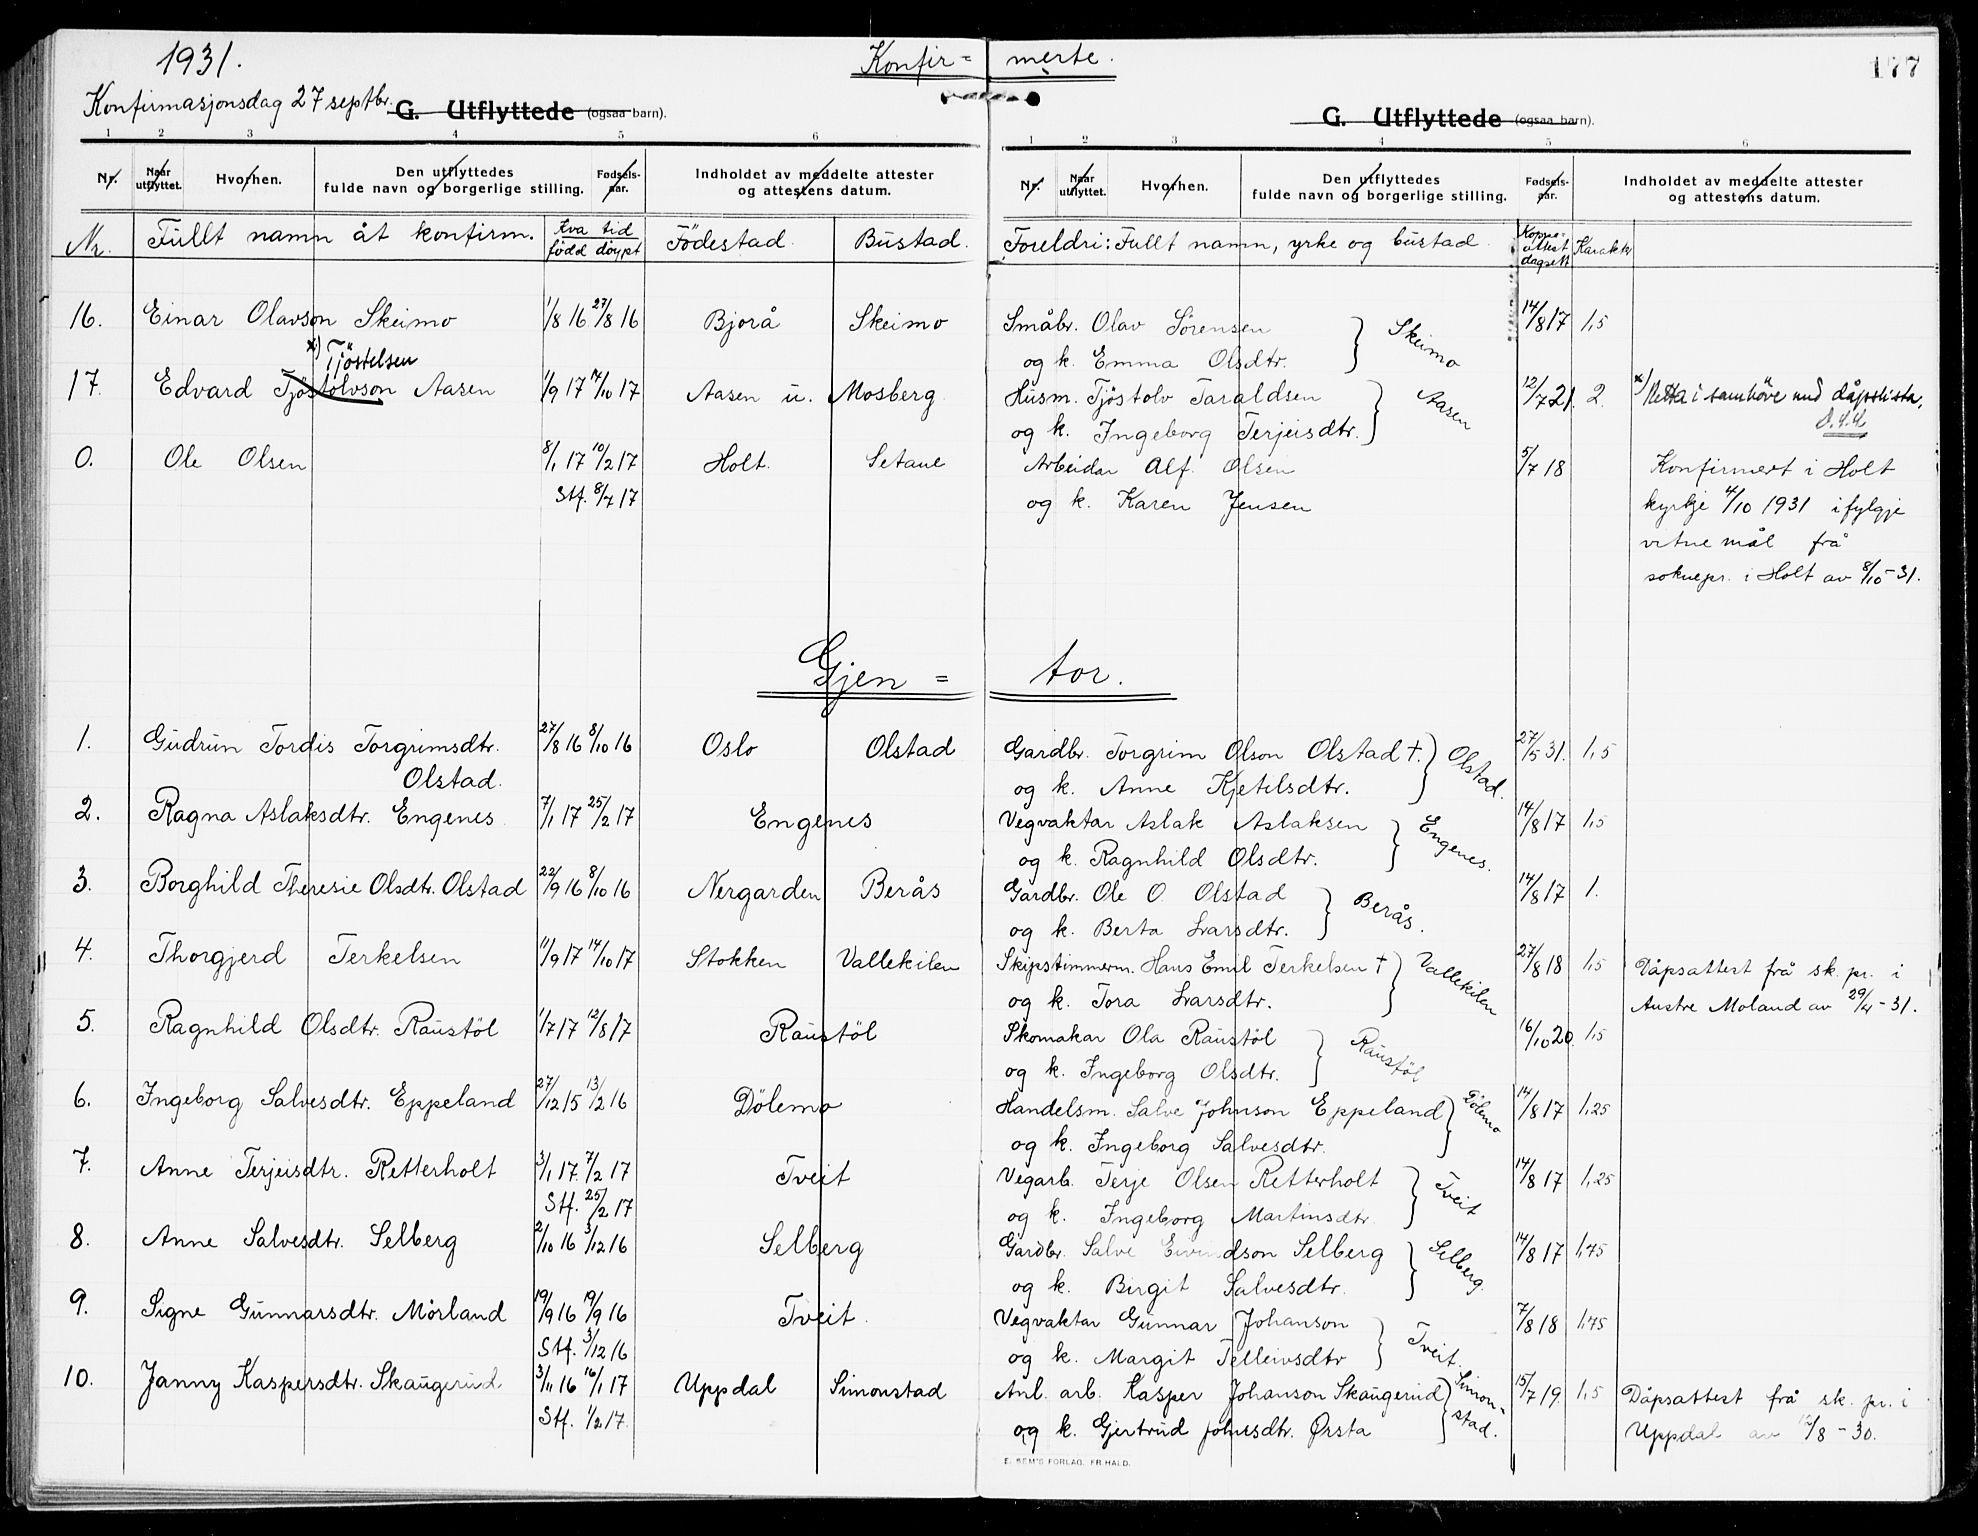 1931.
Konfir= merte.
177
Konfirmasjonsdag 27 septbr.
G. Utflyttede (ogsaa barn).
G. Utflyttede (ogsaa barn).
1 2 3 4 5 6
1 2 3 4 5 6
Nr. Naar utflyttet. Hvorhen. Den utflyttedes fulde navn og borgerlige stilling. Fødsels-aar. Indholdet av meddelte attester og attestens datum.
Nr. Naar utflyttet. Hvorhen. Den utflyttedes fulde navn og borgerlige stilling. Fødsels-aar. Indholdet av meddelte attester og attestens datum.
Nr. Fullt namn åt konfirm. Kva tid født döypt Födestad. Bustad. Foreldri: Fullt namn, yrke og bustad. Koppe-attest dagsett Karakter
16. Einar Olavson Skeimo 1/8 16 27/8 16 Bjorå Skeimo Småbr. Olav Sörensen } Skeimo 14/8 17 1,5
og k. Emma Olsdtr.
x) Tjöstelsen
17. Edvard Tjöstolvson Aasen 1/9 17 14/10 17 Aasen u. Mosberg. Husm. Tjöstolv Taraldsen } Aasen 12/7 21. 2. x) Retta i samhöve med dåpslista.
og k. Ingeborg Terjeisdtr.
0. Ole Olsen 8/1 17 10/2 17 Holt. Setane Arbeidar Alf. Olsen 5/7 18 Konfirmert i Holt
Stf. 8/7 17 og k. Karen Jensen kyrkje 4/10 1931 ifylgje
vitnemål frå
soknepr. i Holt av 8/10-31.
Gjen= tor.
1. Gudrun Tordis Torgrimsdtr. 27/8 16 8/10 16 Oslo Olstad Gardbr. Torgrim Olson Olstad †. } Olstad. 27/5 31. 1,5
Olstad. og k. Anne Kjetelsdtr.
2. Ragna Aslaksdtr. Engenes 7/1 17 25/2 17 Engenes Vegvaktar Aslak Aslaksen } Engenes. 14/8 17 1,5
og k. Ragnhild Olsdtr.
3. Borghild Theresie Olsdtr. Olstad 22/9 16 8/10 16 Nergarden Berås Gardbr. Ole O. Olstad } Berås. 14/8 17 1.
og k. Berta Ivarsdtr.
4. Thorgjerd Terkelsen 11/9 17 14/10 17 Stokken Vallekilen Skipstimmerm. Hans Emil Terkelsen † } Vallekilen 27/8 18 1,5 Dåpsattest frå sk. pr. i
og k. Tora Ivarsdtr. Austre Moland av 29/4-31.
5. Ragnhild Olsdtr. Raustöl 1/7 17 12/8 17 Raustöl Skomakar Ola Raustöl } Raustöl 16/10 20. 1,5
og k. Ingeborg Olsdtr.
6. Ingeborg Salvesdtr. Eppeland 27/12 15 13/2 16 Dölemo Handelsm. Salve Johnson Eppeland } Dölemo 14/8 17 1,25
og k. Ingeborg Salvesdtr.
7. Anne Terjeisdtr. Retterholt 3/1 17. 7/2 17 Tveit Vegarb. Terje Olsen Retterholt } Tveit 14/8 17 1,25
Stf. 25/2 17 og k. Ingeborg Martinsdtr
8. Anne Salvesdtr. Selberg 2/10 16 3/12 16 Selberg Gardbr. Salve Eivindson Selberg } Selberg. 14/8 17 1,75
og k. Birgit Salvesdtr.
9. Signe Gunnarsdtr. Mörland 19/9 16 19/9 16 Tveit. Vegvaktar Gunnar Johanson } Tveit. 7/8 18 1,75
Stf. 3/12 16 og k. Margit Telleivsdtr
10. Janny Kaspersdtr. Skaugerud 3/11 16 16/1 17 Uppdal Simonstad Anl. arb. Kasper Johanson Skaugerud } Simon-stad. 15/7 19. 1,5 Dåpsattest frå sk. pr. i
Stf. 1/2 17. og k. Gjertrud Johnsdtr. Ørsta Uppdal av 12/8-30.
E. SEM'S FORLAG. FR.HALD.